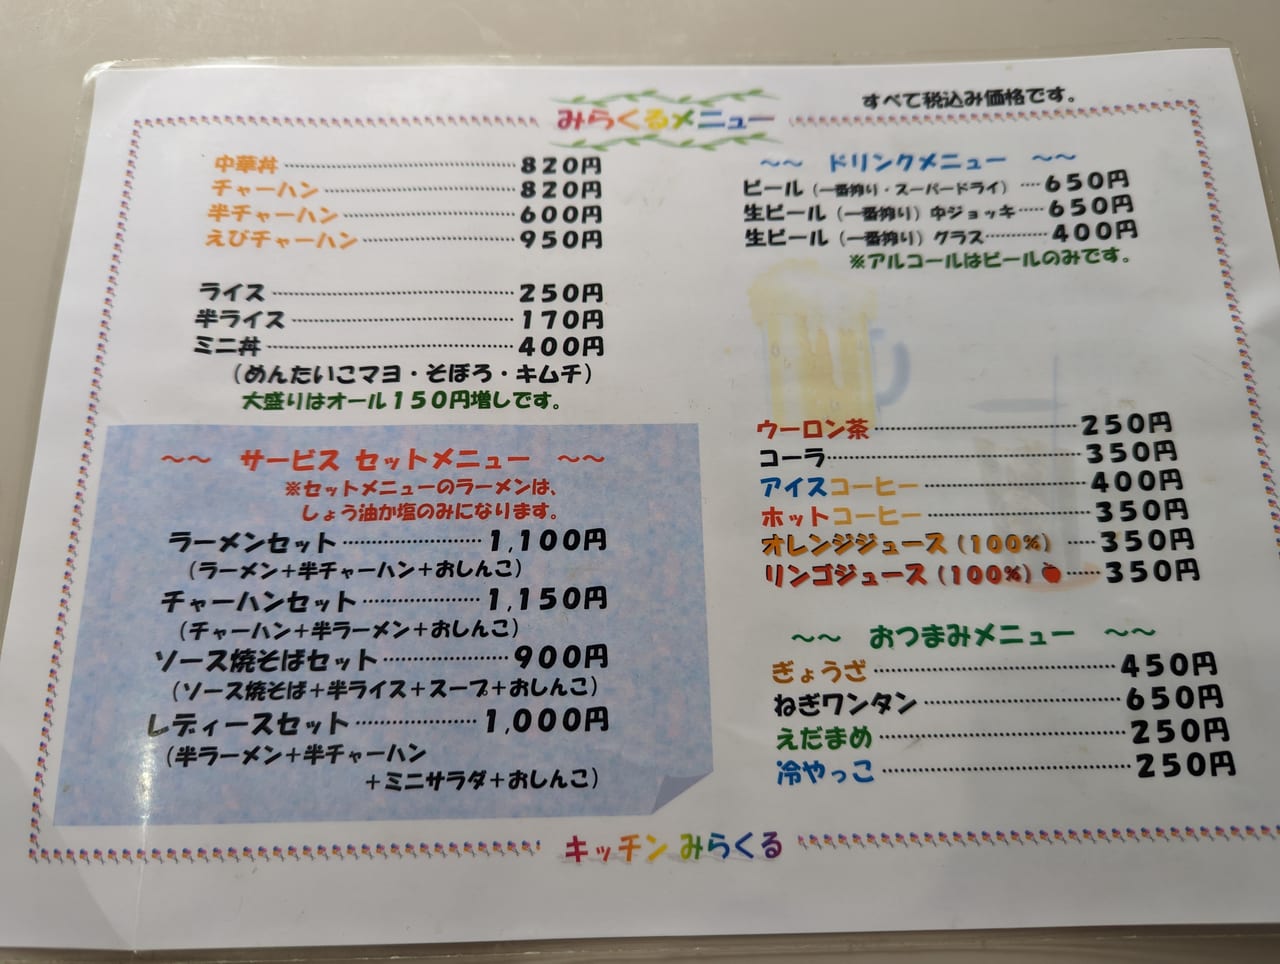 みらくるメニュー
すべて税込み価格です。
中華丼 820円
チャーハン 820円
半チャーハン 600円
えびチャーハン 950円
ライス 250円
半ライス 170円
ミニ丼 400円
(めんたいこマヨ・そぼろ・キムチ)
大盛りはオール150円増しです。
~~ サービス セットメニュー ~~
※セットメニューのラーメンは、
しょう油か塩のみになります。
ラーメンセット 1,100円
(ラーメン+半チャーハン+おしんこ)
チャーハンセット 1,150円
(チャーハン+半ラーメン+おしんこ)
ソース焼そばセット 900円
(ソース焼そば+半ライス+スープ+おしんこ)
レディースセット 1,000円
(半ラーメン+半チャーハン
+ミニサラダ+おしんこ)
~~ ドリンクメニュー ~~
ビール(一番搾り・スーパードライ) 650円
生ビール(一番搾り)中ジョッキ 650円
生ビール(一番搾り)グラス 400円
※アルコールはビールのみです。
ウーロン茶 250円
コーラ 350円
アイスコーヒー 400円
ホットコーヒー 350円
オレンジジュース(100%) 350円
リンゴジュース(100%) 350円
~~ おつまみメニュー ~~
ぎょうざ 450円
ねぎワンタン 650円
えだまめ 250円
冷やっこ 250円
キッチン みらくる